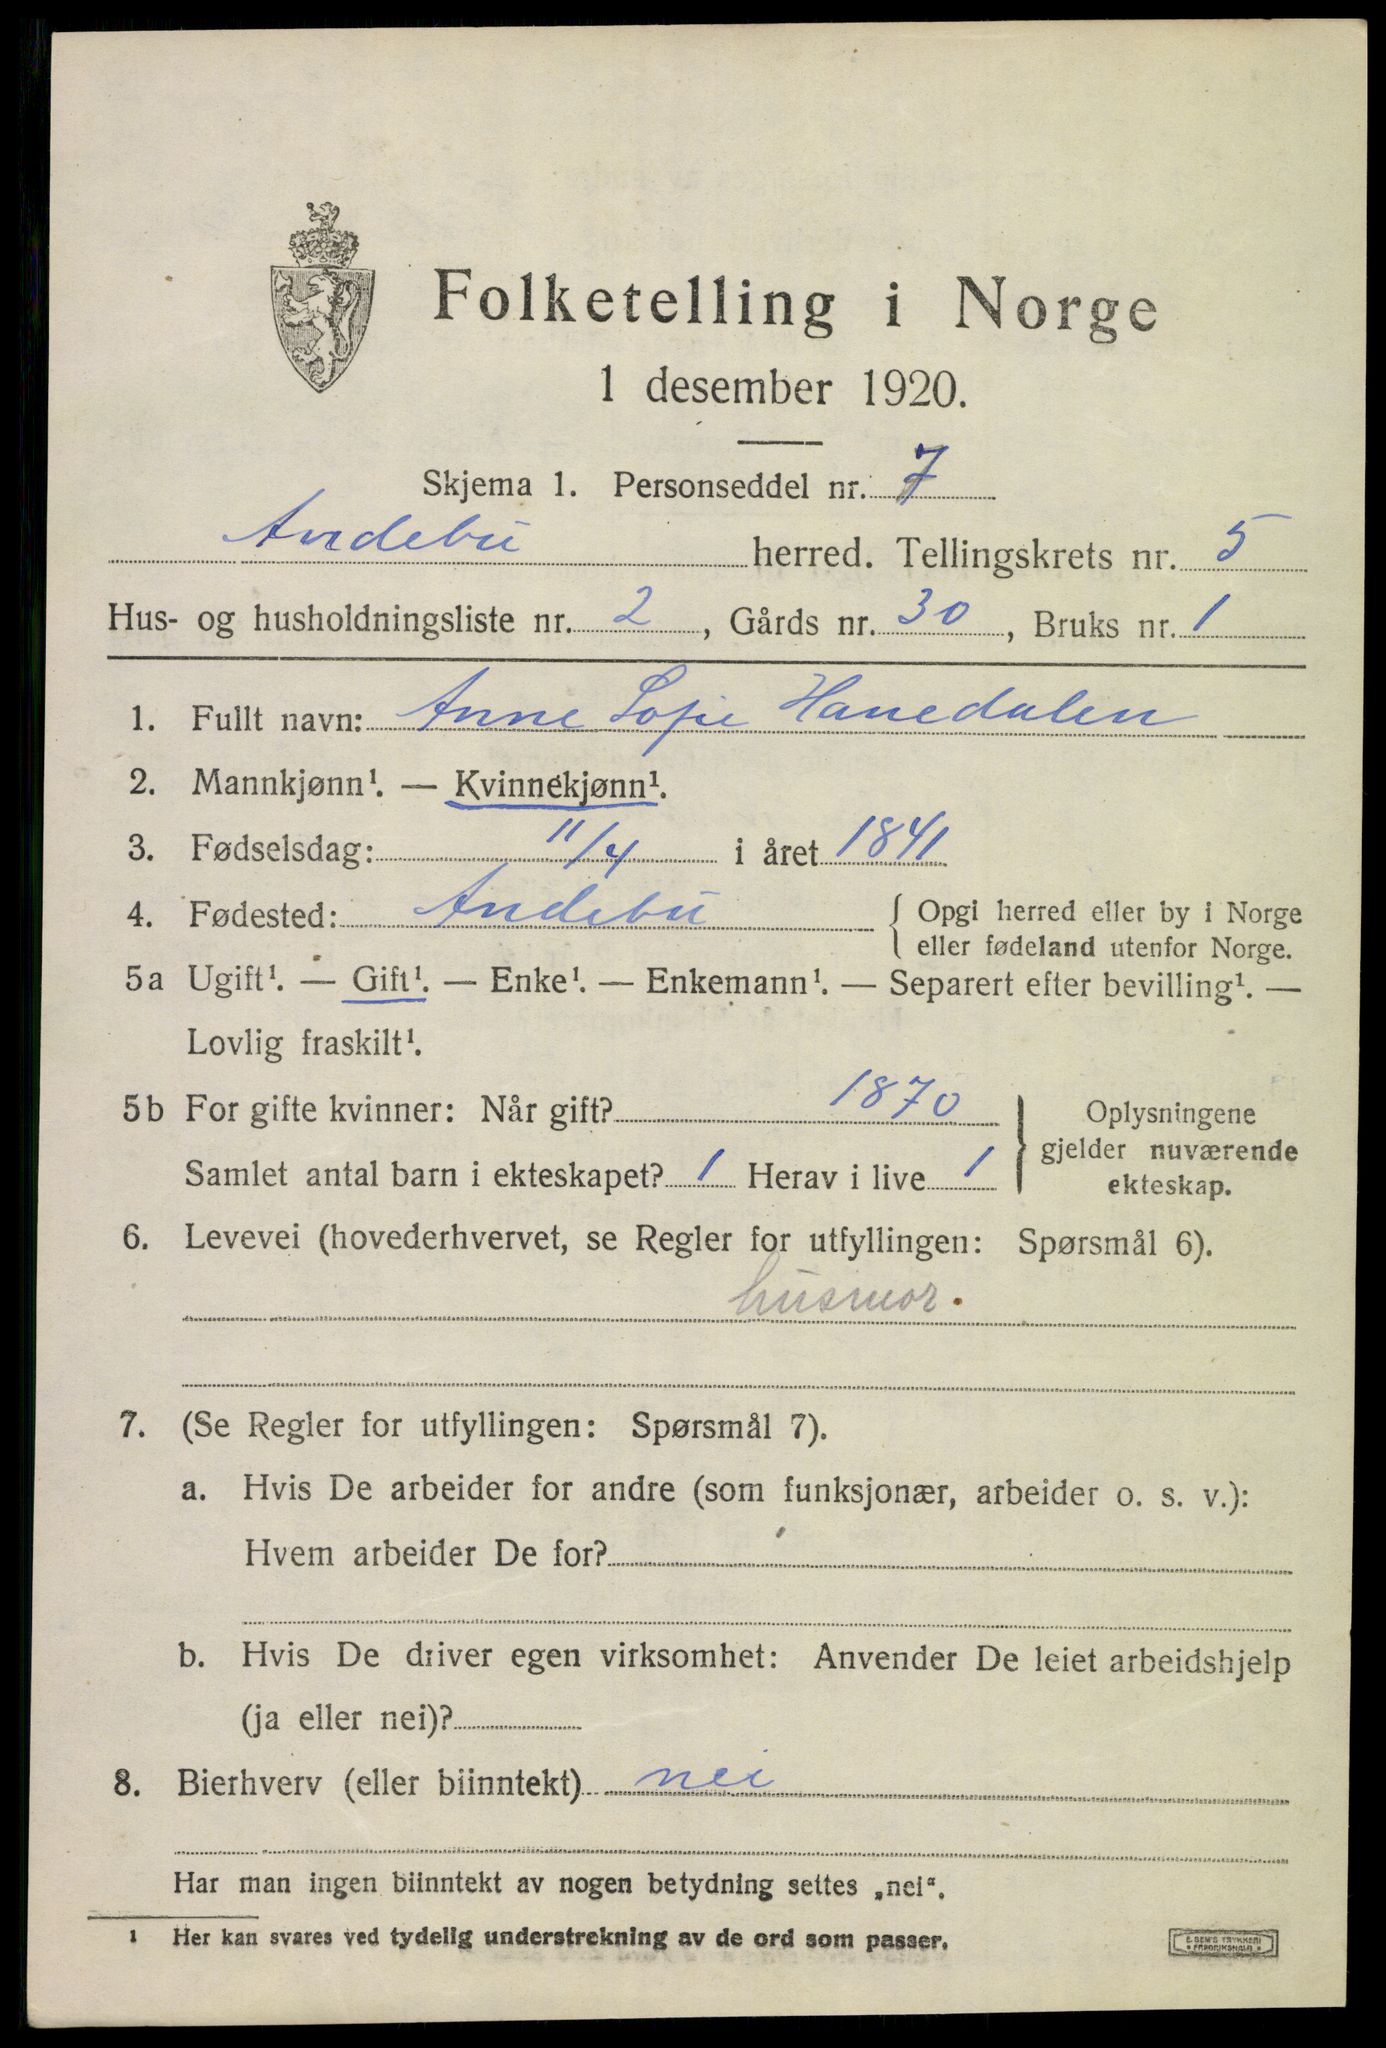 Folketelling i Norge
1 desember 1920.
Skjema 1. Personseddel nr. 7
Andebu herred. Tellingskrets nr. 5
Hus- og husholdningsliste nr. 2, Gårds nr. 30, Bruks nr. 1
1. Fullt navn: Anne Sofie Hanedalen
2. Mannkjønn¹. — Kvinnekjønn¹.
3. Fødselsdag: 11/4 i året 1841
4. Fødested: Andebu { Opgi herred eller by i Norge
eller fødeland utenfor Norge.
5a Ugift¹. — Gift¹. — Enke¹. — Enkemann¹. — Separert efter bevilling¹. —
Lovlig fraskilt¹.
5b For gifte kvinner: Når gift? 1870 } Oplysningene
gjelder nuværende
Samlet antal barn i ekteskapet? 1 Herav i live 1 ekteskap.
6. Levevei (hovederhvervet, se Regler for utfyllingen: Spørsmål 6).
husmor.
7. (Se Regler for utfyllingen: Spørsmål 7).
a. Hvis De arbeider for andre (som funksjonær, arbeider o. s. v.):
Hvem arbeider De for?
b. Hvis De driver egen virksomhet: Anvender De leiet arbeidshjelp
(ja eller nei)?
8. Bierhverv (eller biinntekt) nei
Har man ingen biinntekt av nogen betydning settes „nei“.
¹ Her kan svares ved tydelig understrekning av de ord som passer.
E. SEM'S TRYKKERI
FREDRIKSHALD